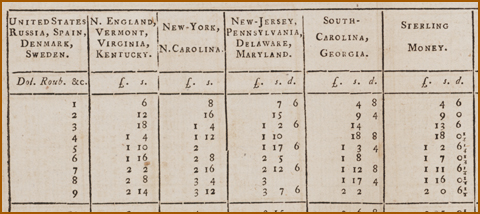 UNITED STATES
RUSSIA, SPAIN,
DENMARK,
SWEDEN.
N. ENGLAND,
VERMONT,
VIRGINIA,
KENTUCKY.
NEW-YORK,
N.CAROLINA.
NEW-JERSEY,
PENNSYLVANIA,
DELAWARE,
MARYLAND.
SOUTH-
CAROLINA,
GEORGIA.
STERLING
MONEY.
Dol. Roub. &c. £. s. £. s. £. s. d. £. s. d. £. s. d.
1 6 8 7 6 4 8 4 6
2 12 16 15 9 4 9 0
3 18 1 4 1 2 6 14 13 6
4 1 4 1 12 1 10 18 8 18 0
5 1 10 2 1 17 6 1 3 4 1 2 6
6 1 16 2 8 2 5 1 8 1 7 0
7 2 2 2 16 2 12 6 1 12 8 1 11 6
8 2 8 3 4 3 1 17 4 1 16 0
9 2 14 3 12 3 7 6 2 2 2 0 6